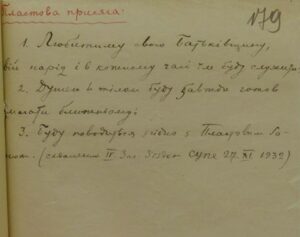 Пластова присяга:
179
1. Любитиму свою Батьківщину,
свій нарід і в кожному часі їм буду служити.
2. Душею й тілом буду завжди готов
помагати ближньому;
3. Буду поводитися згідно з Пластовим За-
коном. (схвалений II. Заг. З'їздом СУПЕ 27. XI 1932)